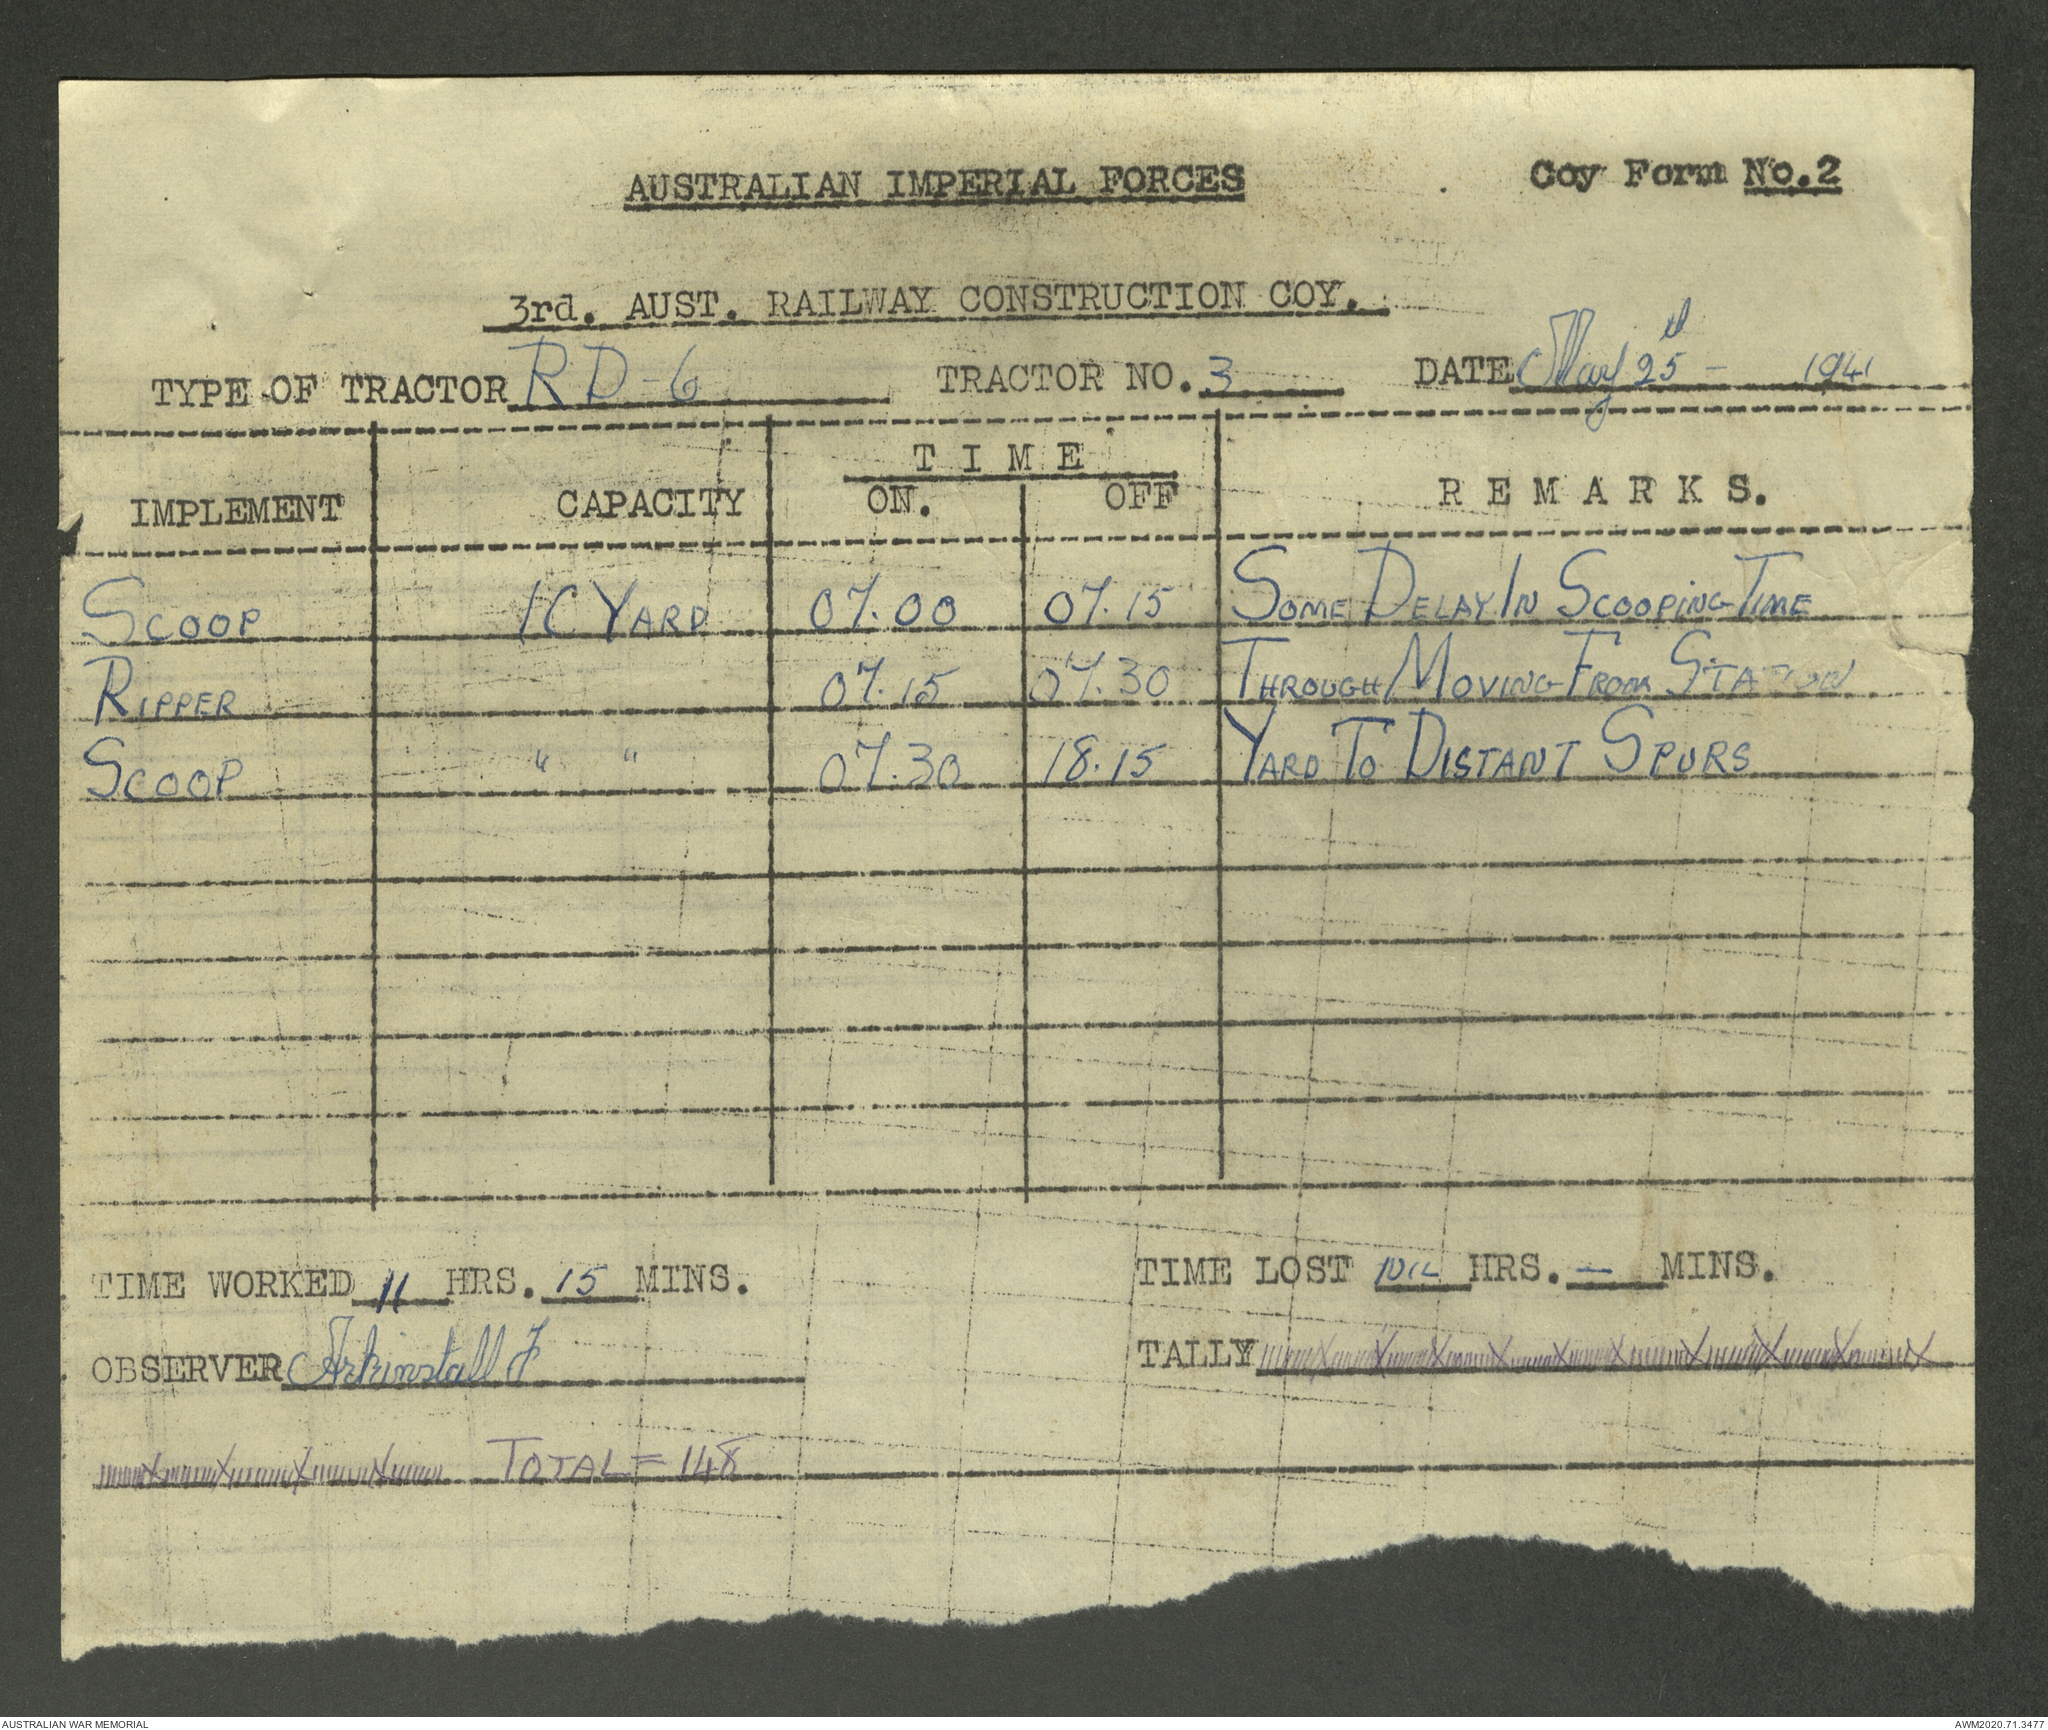 AUSTRALIAN IMPERIAL FORCES
Coy Form No.2
3rd. AUST. RAILWAY CONSTRUCTION COY.
TYPE OF TRACTOR RD-6 TRACTOR NO. 3 DATE May 25th - 1941
T I M E
IMPLEMENT CAPACITY ON. OFF R E M A R K S.
SCOOP 1C YARD 07.00 07.15 SOME DELAY IN SCOOPING TIME
RIPPER 07.15 07.30 THROUGH MOVING FROM STATION
SCOOP " " 07.30 18.15 YARD TO DISTANT SPURS
TIME WORKED 11 HRS. 15 MINS. TIME LOST NIL HRS. — MINS.
OBSERVER Arkinstall F TALLY
TOTAL = 148
AUSTRALIAN WAR MEMORIAL
AWM2020.71.3477